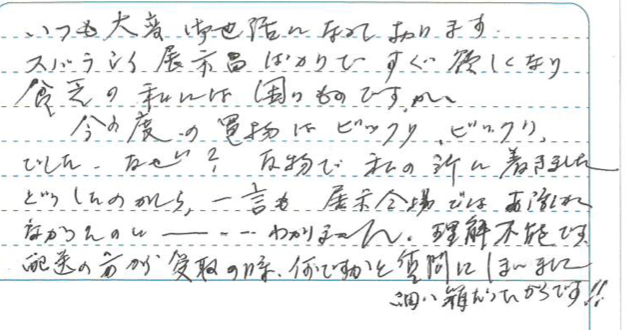 いつも大変御世話になっております.
スバラシイ展示品ばかりですぐ欲しくなり
貧乏の私には困りものですが〜
今の度の買物はビックリ、ビックリ、
でした. なぜ? 反物で私の所に着きました
どうしたのかしら, 一言も展示会場では お話しされ
なかったのに ーーー わかりません. 理解不能です
配達の方が受取の時、何ですかと質問に しまいました
細い箱だったからです!!